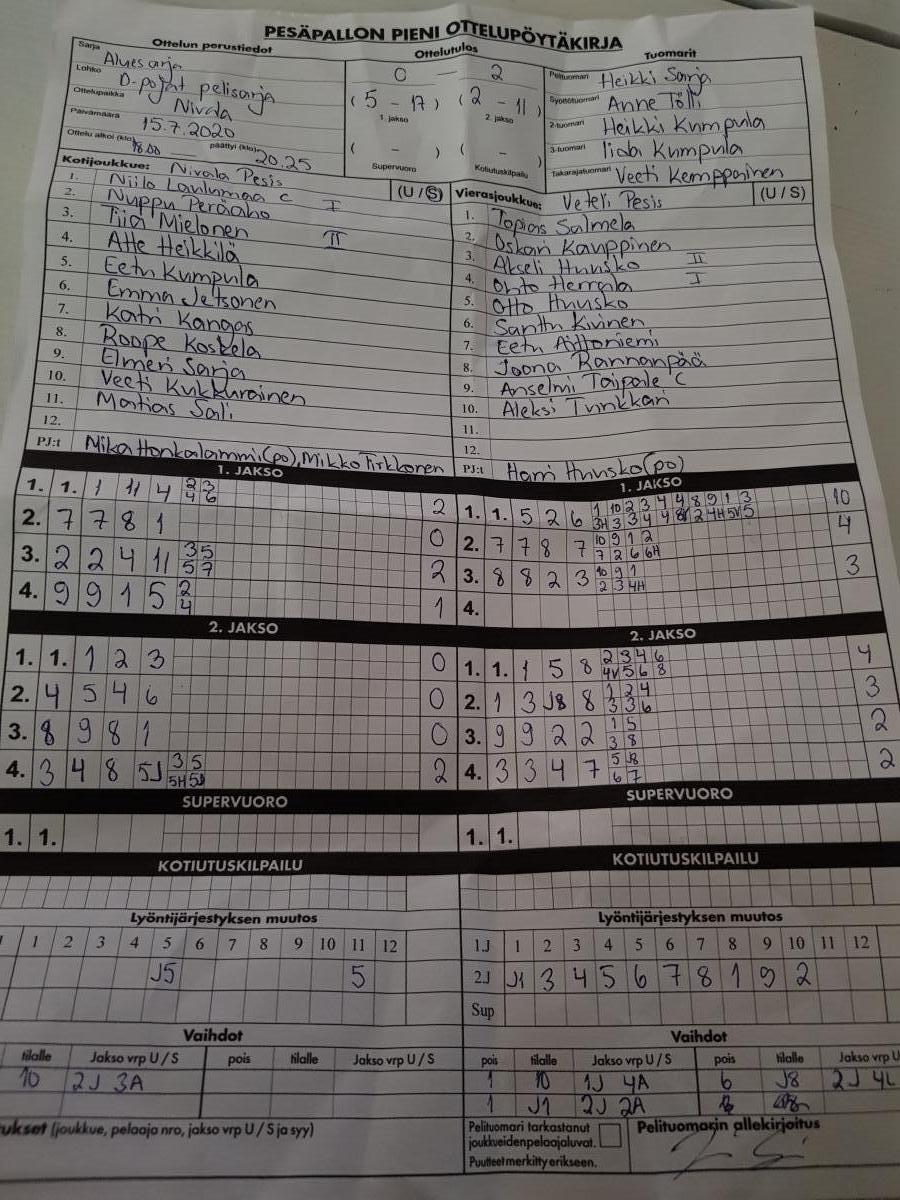 PESÄPALLON PIENI OTTELUPÖYTÄKIRJA
Ottelun perustiedot
Sarja Aluesarja
Lohko D-pojat pelisarja
Ottelupaikka Nivala
Päivämäärä 15.7.2020
Ottelu alkoi (klo) 18.00 päättyi (klo) 20.25
Ottelutulos
0 — 2
( 5 - 17 ) ( 2 - 11 )
1. jakso 2. jakso
( - ) ( - )
Supervuoro Kotiutuskilpailu
Tuomarit
Pelituomari Heikki Sarja
Syöttötuomari Anne Tölli
2-tuomari Heikki Kumpula
3-tuomari Iida Kumpula
Takarajatuomari Veeti Kemppainen
Kotijoukkue: Nivala Pesis (U / S)
1. Niilo Laulumaa C I
2. Nuppu Peräaho
3. Tiia Mielonen II
4. Atte Heikkilä
5. Eetu Kumpula
6. Emma Jetsonen
7. Katri Kangas
8. Roope Koskela
9. Elmeri Sarja
10. Veeti Kukkurainen
11. Matias Sali
12.
PJ:t Mika Honkalammi (po), Mikko Tirkkonen
Vierasjoukkue: Veteli Pesis (U / S)
1. Topias Salmela
2. Oskari Kauppinen
3. Akseli Huusko II
4. Ohto Herrala I
5. Otto Huusko
6. Santtu Kivinen
7. Eetu Aittoniemi
8. Joona Rannanpää
9. Anselmi Taipale C
10. Aleksi Tuikkari
11.
12.
PJ:t Harri Huusko (po)
1. JAKSO
1. 1. 1 11 4 2 3 2
4 6
2. 7 7 8 1 0
3. 2 2 4 11 3 5 2
5 7
4. 9 9 1 5 2 1
4
1. JAKSO
1. 1. 5 2 6 1 10 2 3 4 4 8 9 1 3 10
2. 7 7 8 7 10 9 1 2 4
7 2 6 6H
3. 8 8 2 3 10 9 1 3
2 3 4H
4.
2. JAKSO
1. 1. 1 2 3 0
2. 4 5 4 6 0
3. 8 9 8 1 0
4. 3 4 8 5J 3 5 2
5H 5J
2. JAKSO
1. 1. 1 5 8 2 3 4 6 4
4V 5 6 8
2. 1 3 J8 8 1 2 4 3
3 3 6
3. 9 9 2 2 1 5 2
3 8
4. 3 3 4 7 5 J8 2
6 7
SUPERVUORO
1. 1.
SUPERVUORO
1. 1.
KOTIUTUSKILPAILU
KOTIUTUSKILPAILU
Lyöntijärjestyksen muutos
1 2 3 4 5 6 7 8 9 10 11 12
J5 5
Lyöntijärjestyksen muutos
1J 1 2 3 4 5 6 7 8 9 10 11 12
2J J1 3 4 5 6 7 8 1 9 2
Sup
Vaihdot
tilalle Jakso vrp U / S pois tilalle Jakso vrp U / S
10 2J 3A
Vaihdot
pois tilalle Jakso vrp U / S pois tilalle Jakso vrp U
1 10 1J 4A 6 J8 2J 4L
1 J1 2J 2A
ukset (joukkue, pelaaja nro, jakso vrp U / S ja syy)
Pelituomari tarkastanut
joukkueidenpelaajaluvat.
Puutteet merkitty erikseen.
Pelituomarin allekirjoitus